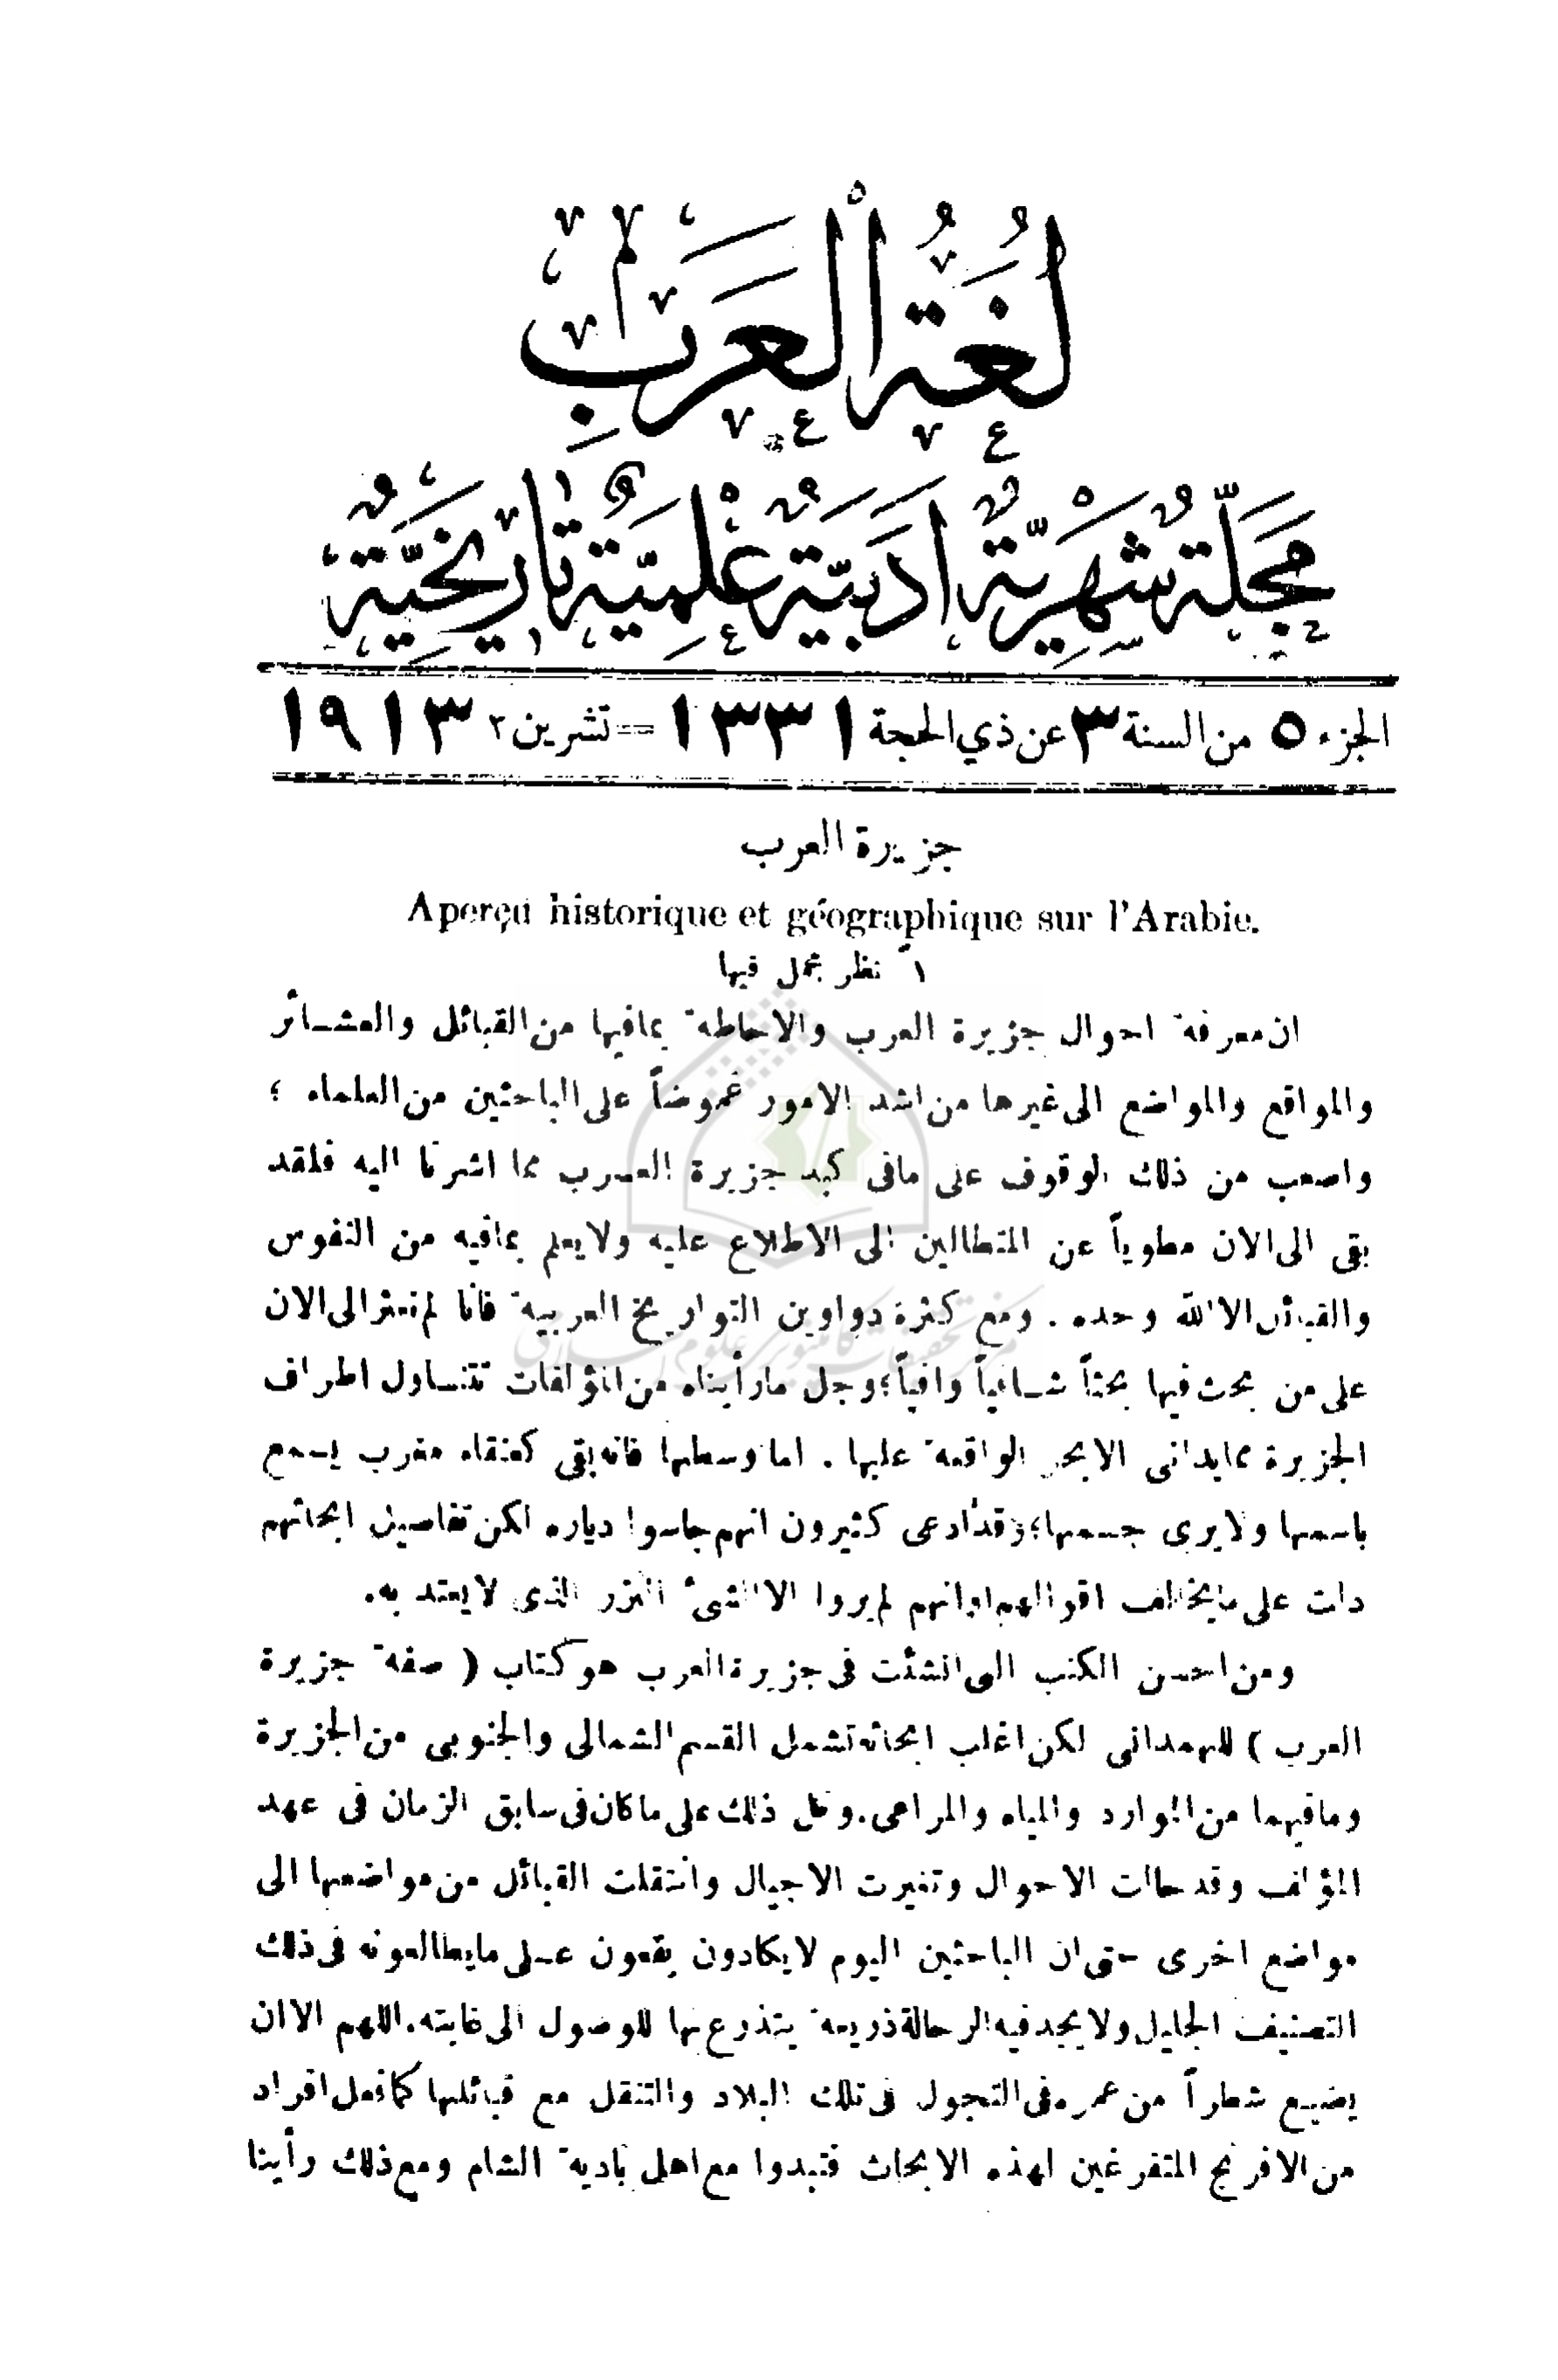 لُغَةُ الْعَرَبِ
مَجَلَّةٌ شَهْرِيَّةٌ اَدَبِيَّةٌ عِلْمِيَّةٌ تَارِيخِيَّةٌ
الجزء ٥ من السنة ٣ عن ذي الحجة ١٣٣١ == تشرين ٢ ١٩١٣
جزيرة العرب
Aperçu historique et géographique sur l'Arabie.
١ً نظر مجمل فيها
ان معرفة احوال جزيرة العرب والاحاطة بمافيها من القبائل والعشائر
والمواقع والمواضع الى غيرها من اشد الامور غموضاً على الباحثين من العلماء ؛
واصعب من ذلك الوقوف على مافى كبد جزيرة العرب مما اشرنا اليه فلقد
بقى الى الان مطوياً عن المتطالين الى الاطلاع عليه ولايعلم بمافيه من النفوس
والقبائل الا الله وحده . ومع كثرة دواوين التواريخ العربية فانا لم نعثر الى الان
على من بحث فيها بحثاً شافياً وافياً؛ وجل مارأيناه من المؤلفات تتناول اطراف
الجزيرة ممايدانى الابحر الواقعة عليها . اما وسطها فانه بقى كعنقاء مغرب يسمع
باسمها ولايرى جسمها؛ وقد ادعى كثيرون انهم جاسوا دياره لكن تفاصيل ابحاثهم
دلت على مايخالف اقوالهم اوانهم لم يروا الا الشىء النزر الذى لايعتد به.
ومن احسن الكتب التى انشئت فى جزيرة العرب هو كتاب ( صفة جزيرة
العرب ) للهمدانى لكن اغلب ابحاثه تشمل القسم الشمالى والجنوبى من الجزيرة
ومافيهما من الموارد والمياه والمراعى. وكل ذلك على ماكان فى سابق الزمان فى عهد
المؤلف وقد حالت الاحوال وتغيرت الاجيال وانتقلت القبائل من مواضعها الى
مواضع اخرى حتى ان الباحثين اليوم لايكادون يقعون على مايطالعونه فى ذلك
التصنيف الجليل ولايجد فيه الرحالة ذريعة يتذرع بها للوصول الى غايته. اللهم الا ان
يضيع شطراً من عمره فى التجول فى تلك البلاد والتنقل مع قبائلها كمافعل افراد
من الافرنج المتفرغين لهذه الابحاث فتبدوا مع اهل بادية الشام ومع ذلك رأينا